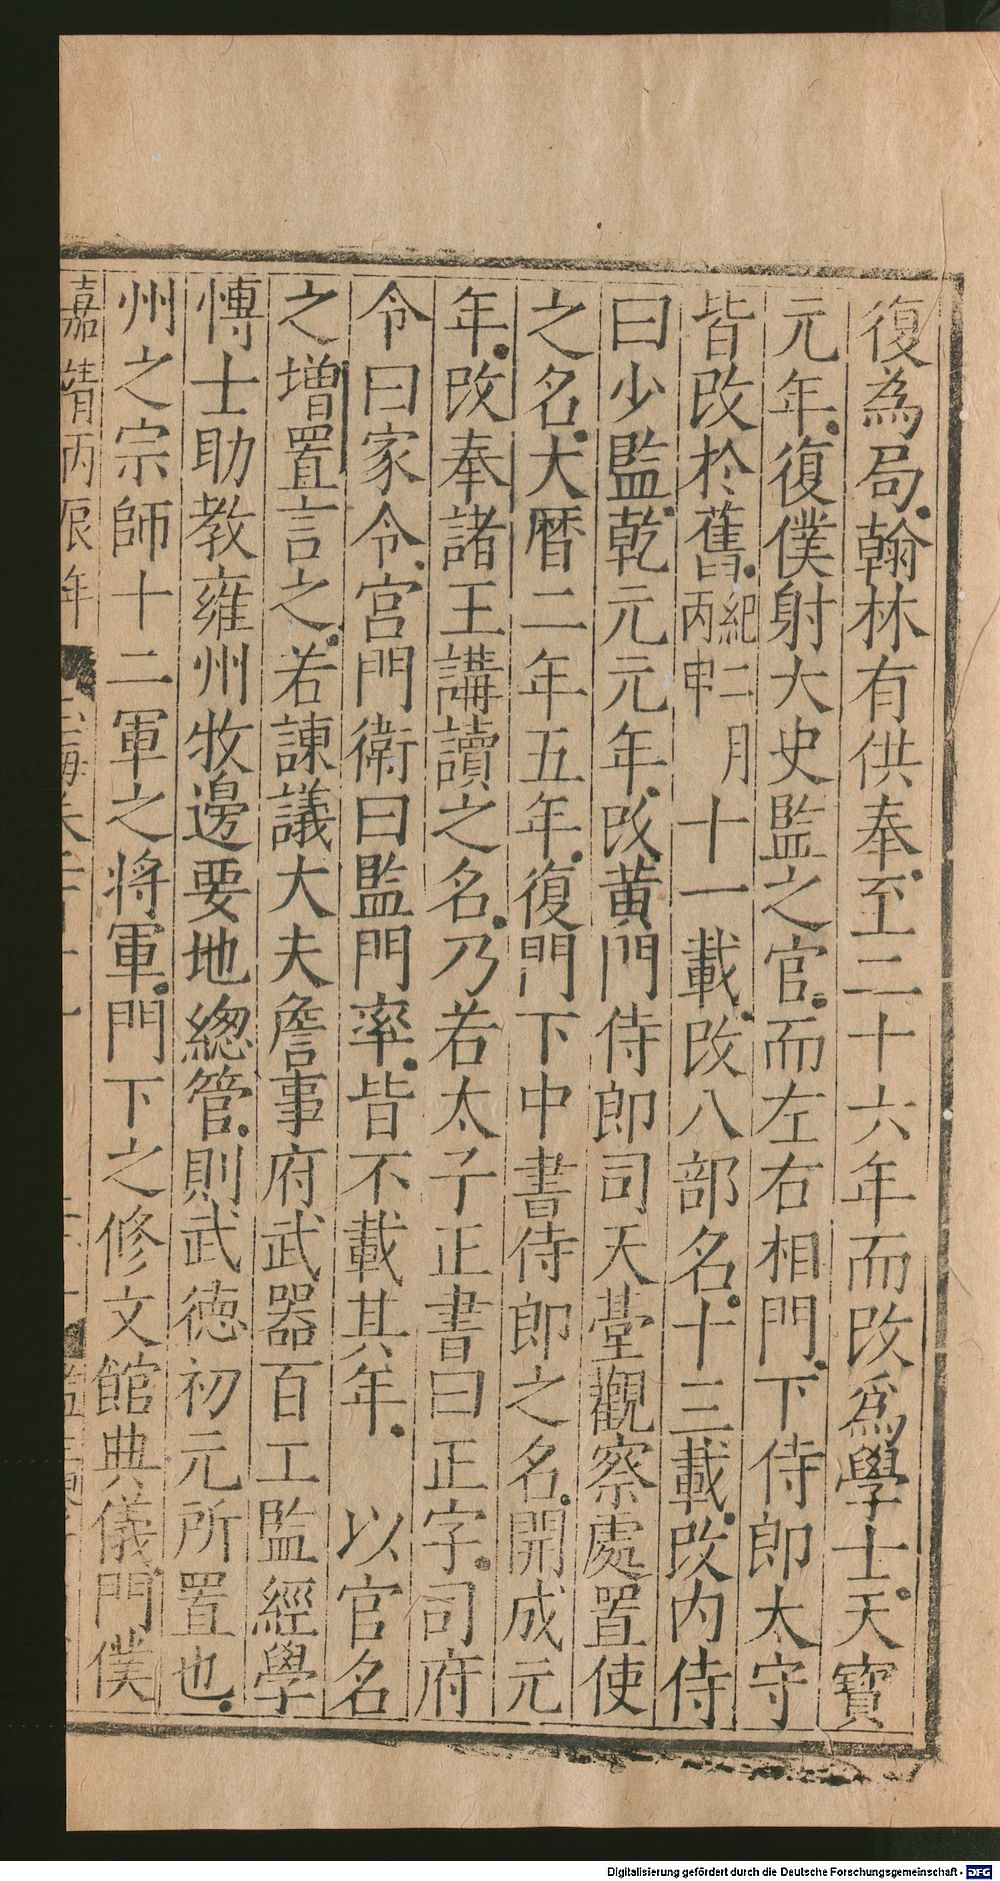 復為局翰林有供奉至二十六年而改為學士天寳
元年復僕射大史監之官而左右相門下侍郎太守
皆改於舊紀二月丙申十一載改八部名十三載改内侍
曰少監乾元元年改黄門侍郎司天臺觀察處置使
之名大暦二年五年復門下中書侍郎之名開成元
年改奉諸王講讀之名乃若太子正書曰正字司府
令曰家令宫門衛曰監門率皆不載其年 以官名
之增置言之若諫議大夫詹事府武器百工監經學
愽士助教雍州牧邊要地總管則武徳初元所置也
州之宗師十二軍之将軍門下之修文館典儀門僕
嘉靖丙辰年
Digitalisierung gefördert durch die Deutsche Forschungsgemeinschaft - DFG